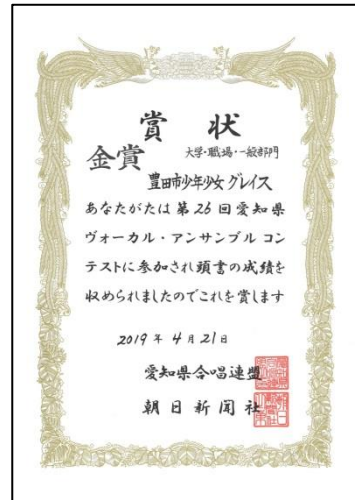 賞状
金賞 大学・職場・一般部門
豊田市少年少女 グレイス
あなたがたは第26回愛知県
ヴォーカル・アンサンブルコン
テストに参加され頭書の成績を
収められましたのでこれを賞します
2019年4月21日
愛知県合唱連盟
朝日新聞社